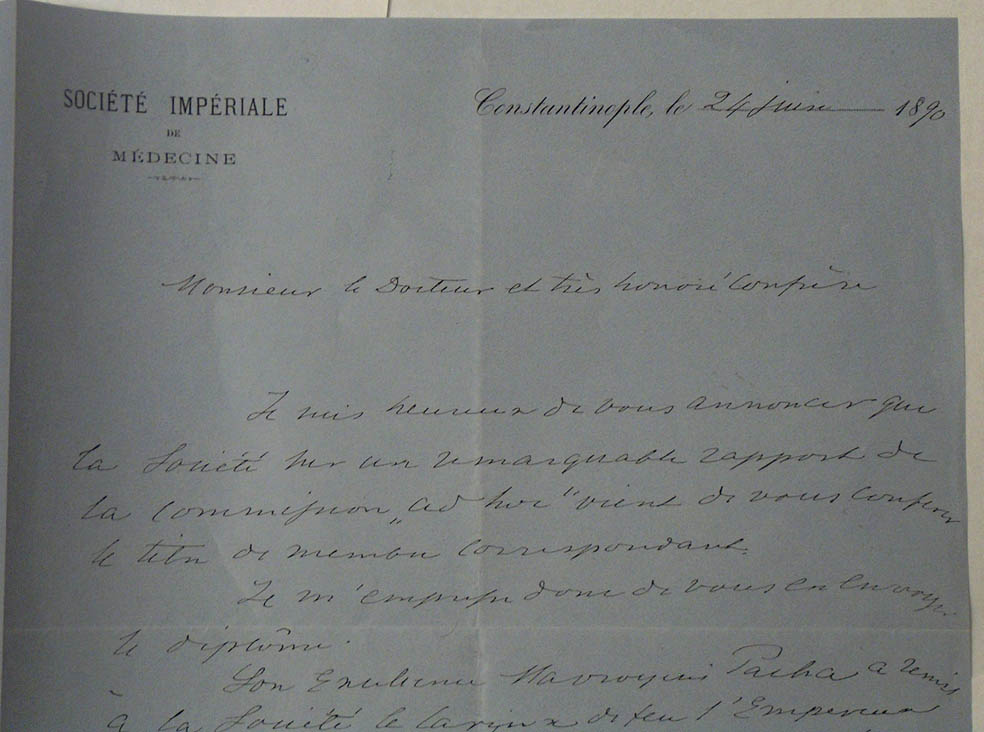 SOCIÉTÉ IMPÉRIALE
DE
MÉDECINE
Constantinople, le 24 Juin 1890
Monsieur le Docteur et très honoré Confrère
Je suis heureux de vous annoncer que
la Société sur un remarquable rapport de
la Commission „ad hoc" vient de vous conférer
le titre de membre correspondant.
Je m'empresse donc de vous en envoyer
le diplôme.
Son Excellence Mavroyeni Pacha a remis
à la Société le larynx de feu l'Empereur